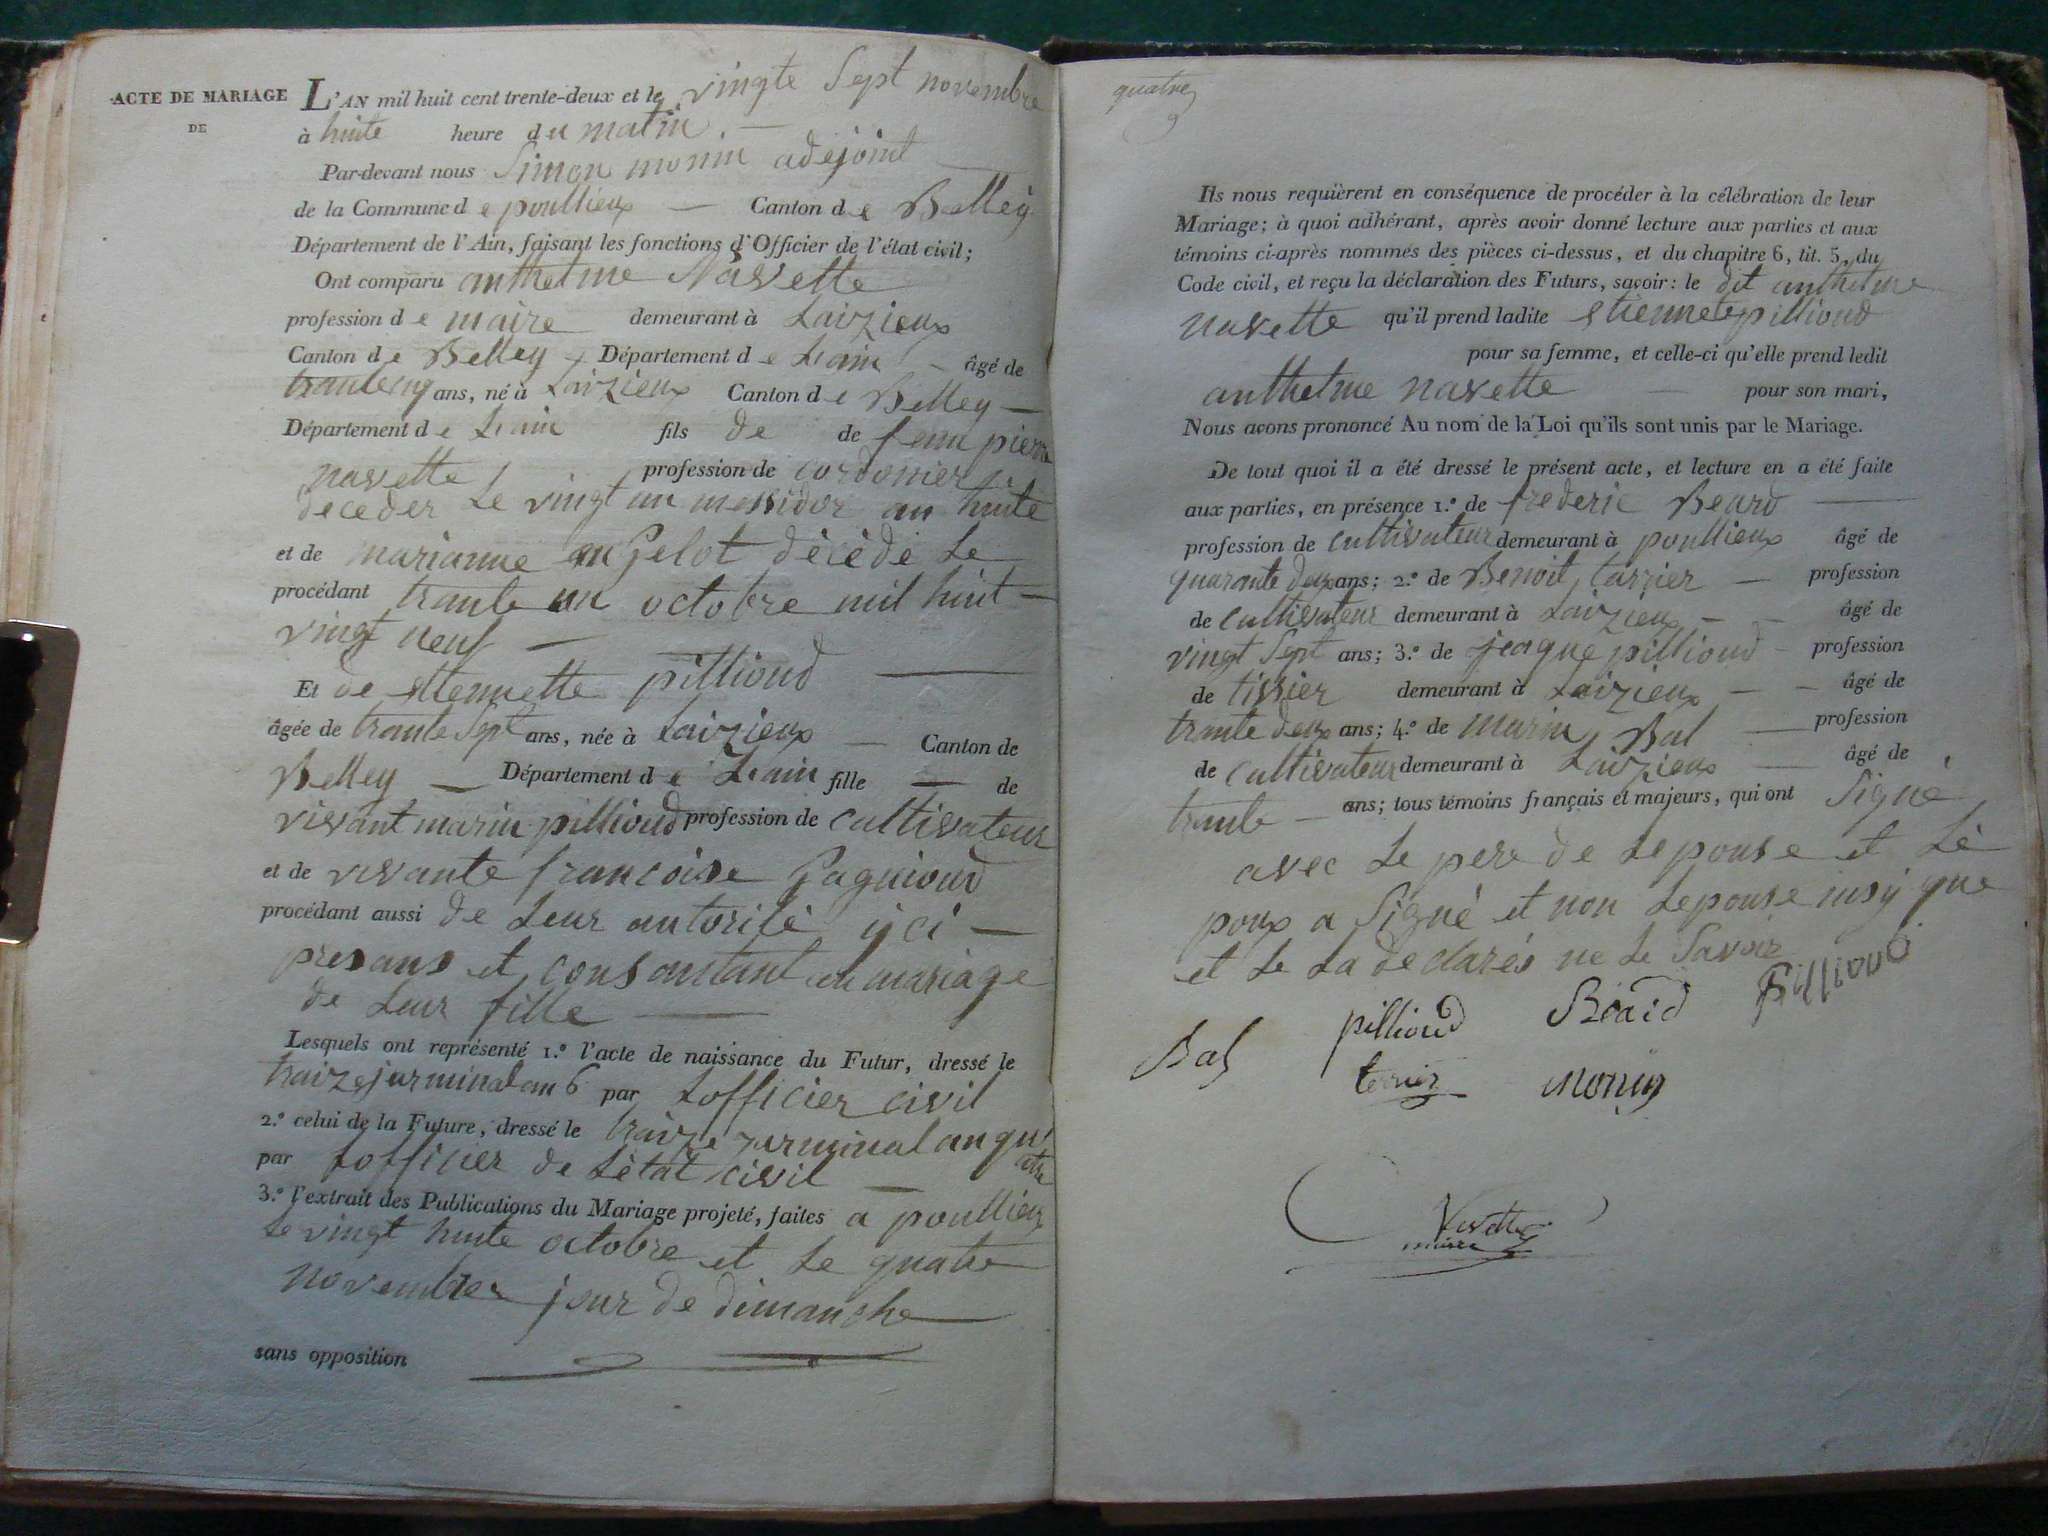 ACTE DE MARIAGE
DE
L'AN mil huit cent trente-deux et le vingte Sept novembre
à huite heure du matin.
Par-devant nous Simon monin adejoint
de la Commune de poullieux Canton de Belley
Département de l'Ain, faisant les fonctions d'Officier de l'état civil;
Ont comparu anthelme Navette
profession de maire demeurant à Laizieux
Canton de Belley Département de Lain âgé de
trantecinq ans, né à Laizieux Canton de Belley
Département de Lain fils de de feau pierre
navette profession de cordonier
deceder Le vingt un messidor an huite
et de marianne Gelot décédé Le
procédant trante un octobre mil huit
vingt neuf
Et de etiennette pillioud
âgée de trante Sept ans, née à Laizieux Canton de
Belley Département de Lain fille de
vivant marin pillioud profession de cultivateur
et de vivante francoise Paguioud
procédant aussi de Leur autorité ÿ ci
presans et consantant au mariage
de Leur fille
Lesquels ont représenté 1.º l'acte de naissance du Futur, dressé le
traize jurminal an 6 par Lofficier civil
2.º celui de la Future, dressé le traize jurminal an quatre
par Lofficier de Létat civil
3.º l'extrait des Publications du Mariage projeté, faites a poullieux
Le vingt huite octobre et Le quatre
novembre jour de dimanche
sans opposition
quatre
Ils nous requièrent en conséquence de procéder à la célébration de leur
Mariage; à quoi adhérant, après avoir donné lecture aux parties et aux
témoins ci-après nommés des pièces ci-dessus, et du chapitre 6, tit. 5, du
Code civil, et reçu la déclaration des Futurs, savoir: le dit anthelme
navette qu'il prend ladite etiennete pillioud
pour sa femme, et celle-ci qu'elle prend ledit
anthelme navette pour son mari,
Nous avons prononcé Au nom de la Loi qu'ils sont unis par le Mariage.
De tout quoi il a été dressé le présent acte, et lecture en a été faite
aux parties, en présence 1.º de frederic Beard
profession de cultivateur demeurant à poullieux âgé de
quarante deux ans; 2.º de Benoit tarrier profession
de cultivateur demeurant à Laizieux âgé de
vingt Sept ans; 3.º de jeaque pillioud profession
de tissier demeurant à Laizieux âgé de
trante deux ans; 4.º de marin Bal profession
de cultivateur demeurant à Laizieux âgé de
trante ans; tous témoins français et majeurs, qui ont Signé
avec Le pere de Lepouse et Lé
poux a Signé et non Lepouse insÿ que
et Le La declarés ne Le Savoir
pillioud Béard Pillioud
Bal
terrier monin
Navette
maire